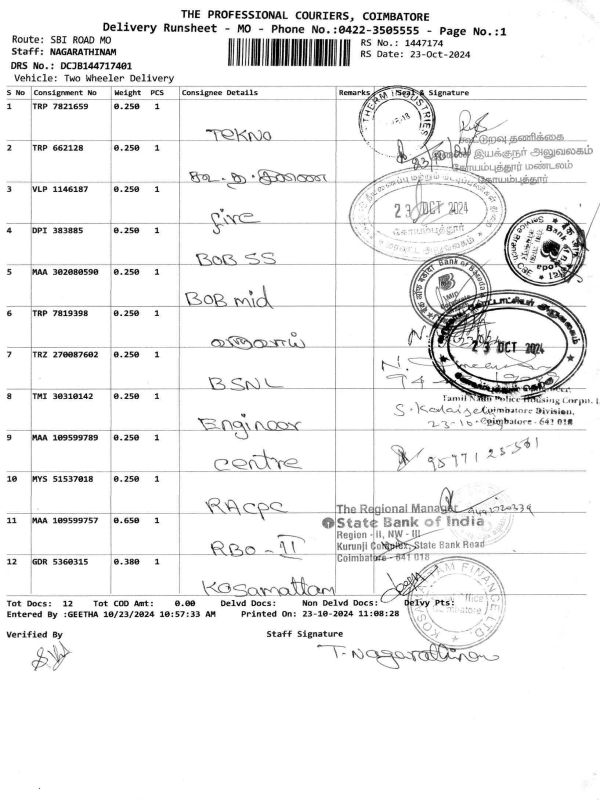 THE PROFESSIONAL COURIERS, COIMBATORE
Delivery Runsheet - MO - Phone No.:0422-3505555 - Page No.:1
Route: SBI ROAD MO
RS No.: 1447174
Staff: NAGARATHINAM
RS Date: 23-Oct-2024
DRS No.: DCJB144717401
Vehicle: Two Wheeler Delivery
S No Consignment No Weight PCS Consignee Details Remarks Seal & Signature
1 TRP 7821659 0.250 1 Tekno
THERM INDUSTRIES
2 TRP 662128 0.250 1
கூட்டுறவு தணிக்கை
இயக்குநர் அலுவலகம்
கோயம்புத்தூர் மண்டலம்
கோயம்புத்தூர்
3 VLP 1146187 0.250 1 fire
23 OCT 2024
கோயம்புத்தூர்
4 DPI 383885 0.250 1 BOB SS
5 MAA 302080590 0.250 1 BOB mid
Bank of Baroda
6 TRP 7819398 0.250 1
23 OCT 2024
7 TRZ 270087602 0.250 1 BSNL
8 TMI 30310142 0.250 1 Engineer
Tamil Nadu Police Housing Corpn. L
Coimbatore Division,
Coimbatore - 641 018
9 MAA 109599789 0.250 1 centre
10 MYS 51537018 0.250 1 RACPC
11 MAA 109599757 0.650 1 RBO-II
The Regional Manager
State Bank of India
Region - II, NW - III
Kurunji Complex, State Bank Road
Coimbatore - 641 018
12 GDR 5360315 0.380 1 Kosamattam
KOSAMATTAM FINANCE LTD.
Tot Docs: 12 Tot COD Amt: 0.00 Delvd Docs: Non Delvd Docs: Delvy Pts:
Entered By :GEETHA 10/23/2024 10:57:33 AM Printed On: 23-10-2024 11:08:28
Verified By Staff Signature
T. Nagarathinam